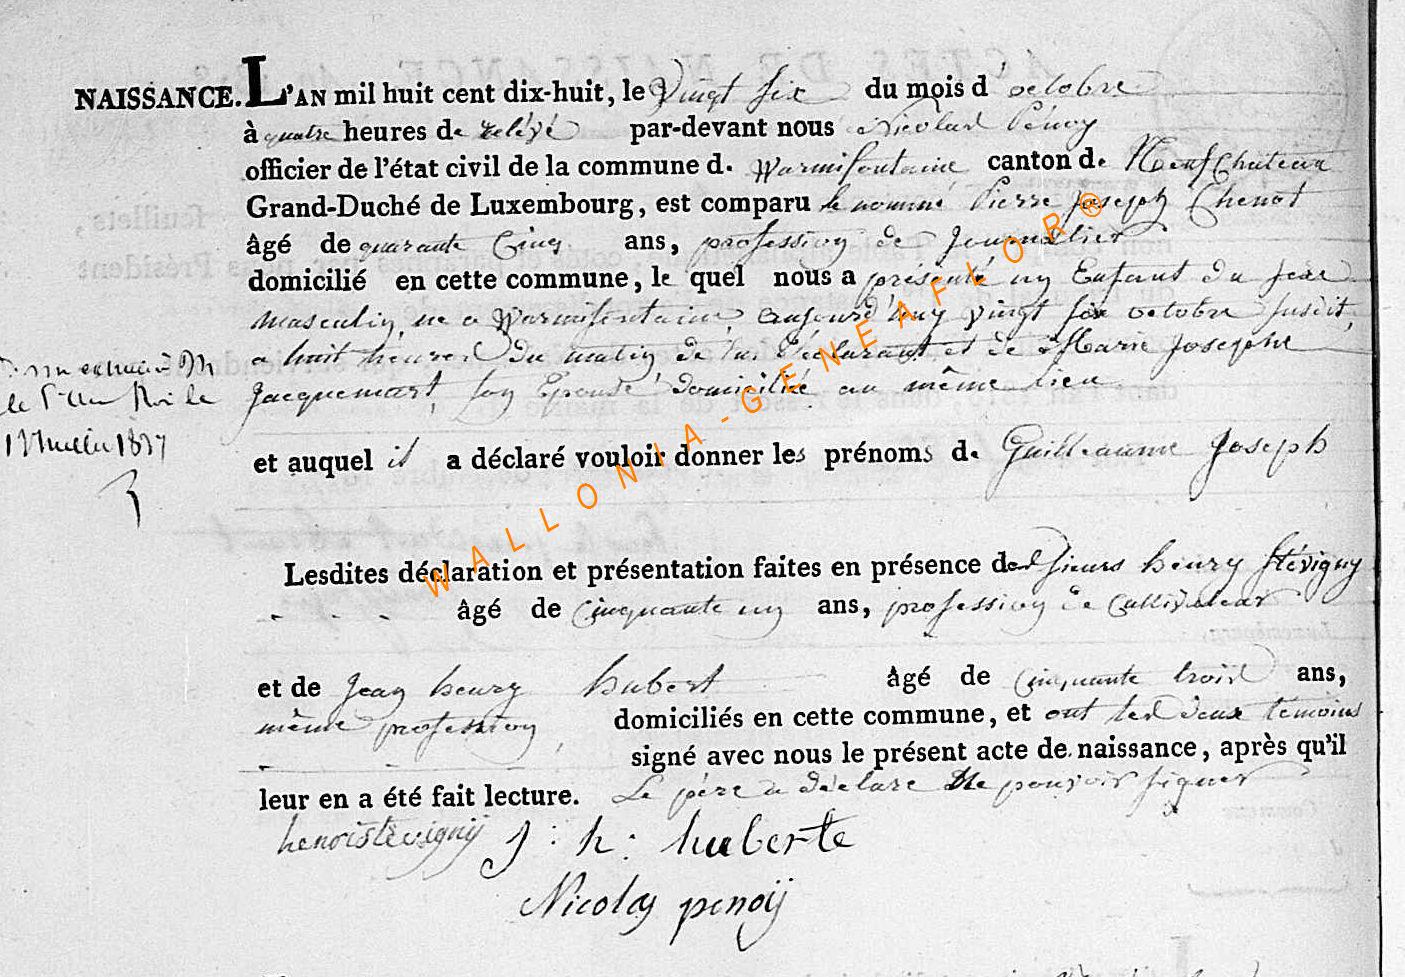 NAISSANCE. L'AN mil huit cent dix-huit, le Vingt six du mois d' octobre
à quatre heures de relévé par-devant nous Nicolas Pénoy
officier de l'état civil de la commune d. Warmifontaine canton de Neufchateau
Grand-Duché de Luxembourg, est comparu le nommé Pierre Joseph Chenot
âgé de quarante Cinq ans, profession de Journalier
domicilié en cette commune, le quel nous a présenté un Enfant du sexe
masculin, né a Warmifontaine, aujourd'huy vingt six octobre susdit,
a huit heures du matin, de lui Déclarant et de Marie Josephe
Jacquemart, son Epouse, domicilié au même lieu
le
Juillet 1837
et auquel il a déclaré vouloir donner les prénoms de Guilleaume Joseph
Lesdites déclaration et présentation faites en présence des sieurs henry Stévigny
âgé de Cinquante un ans, profession de Cultivateur
et de Jean henry hubert âgé de Cinquante trois ans,
même profession, domiciliés en cette commune, et ont les deux témoins
signé avec nous le présent acte de naissance, après qu'il
leur en a été fait lecture. Le père a déclaré Ne pouvoir signer
henoistevignij J : h : huberte
Nicolas penoij
WALLONIA-GENEAFLOR®